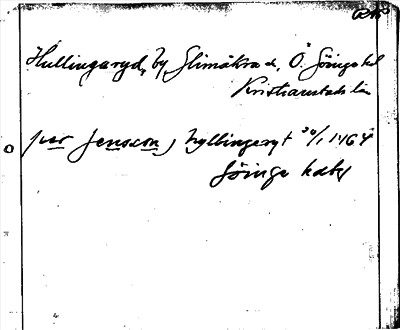 Hullingaryd, by, Glimåkra sn, Ö. Göinge hd
Kristianstads län
per Jensson, hyllingeryt 30/1 1464
Göinge habr